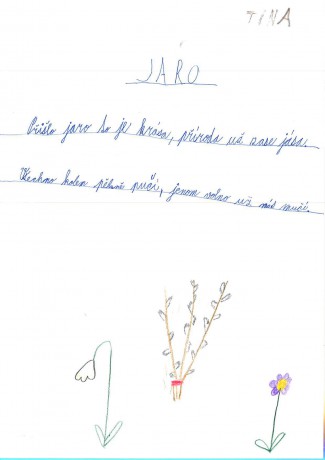 TINA
JARO
Přišlo jaro to je krása, příroda už zase jásá.
Všechno kolem pěkně pučí, jenom volno už nás